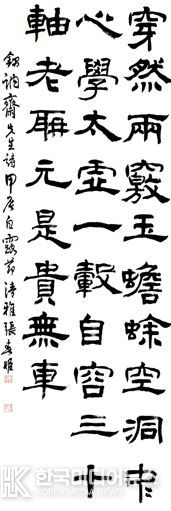 穿然兩竅玉蟾蜍空洞中
心學太虛一轂自容三十
軸老聃元是貴無車
先生詩甲辰白露節清雅張春姬
HK 한국미디어뉴스
KOREA MEDIA NEWS